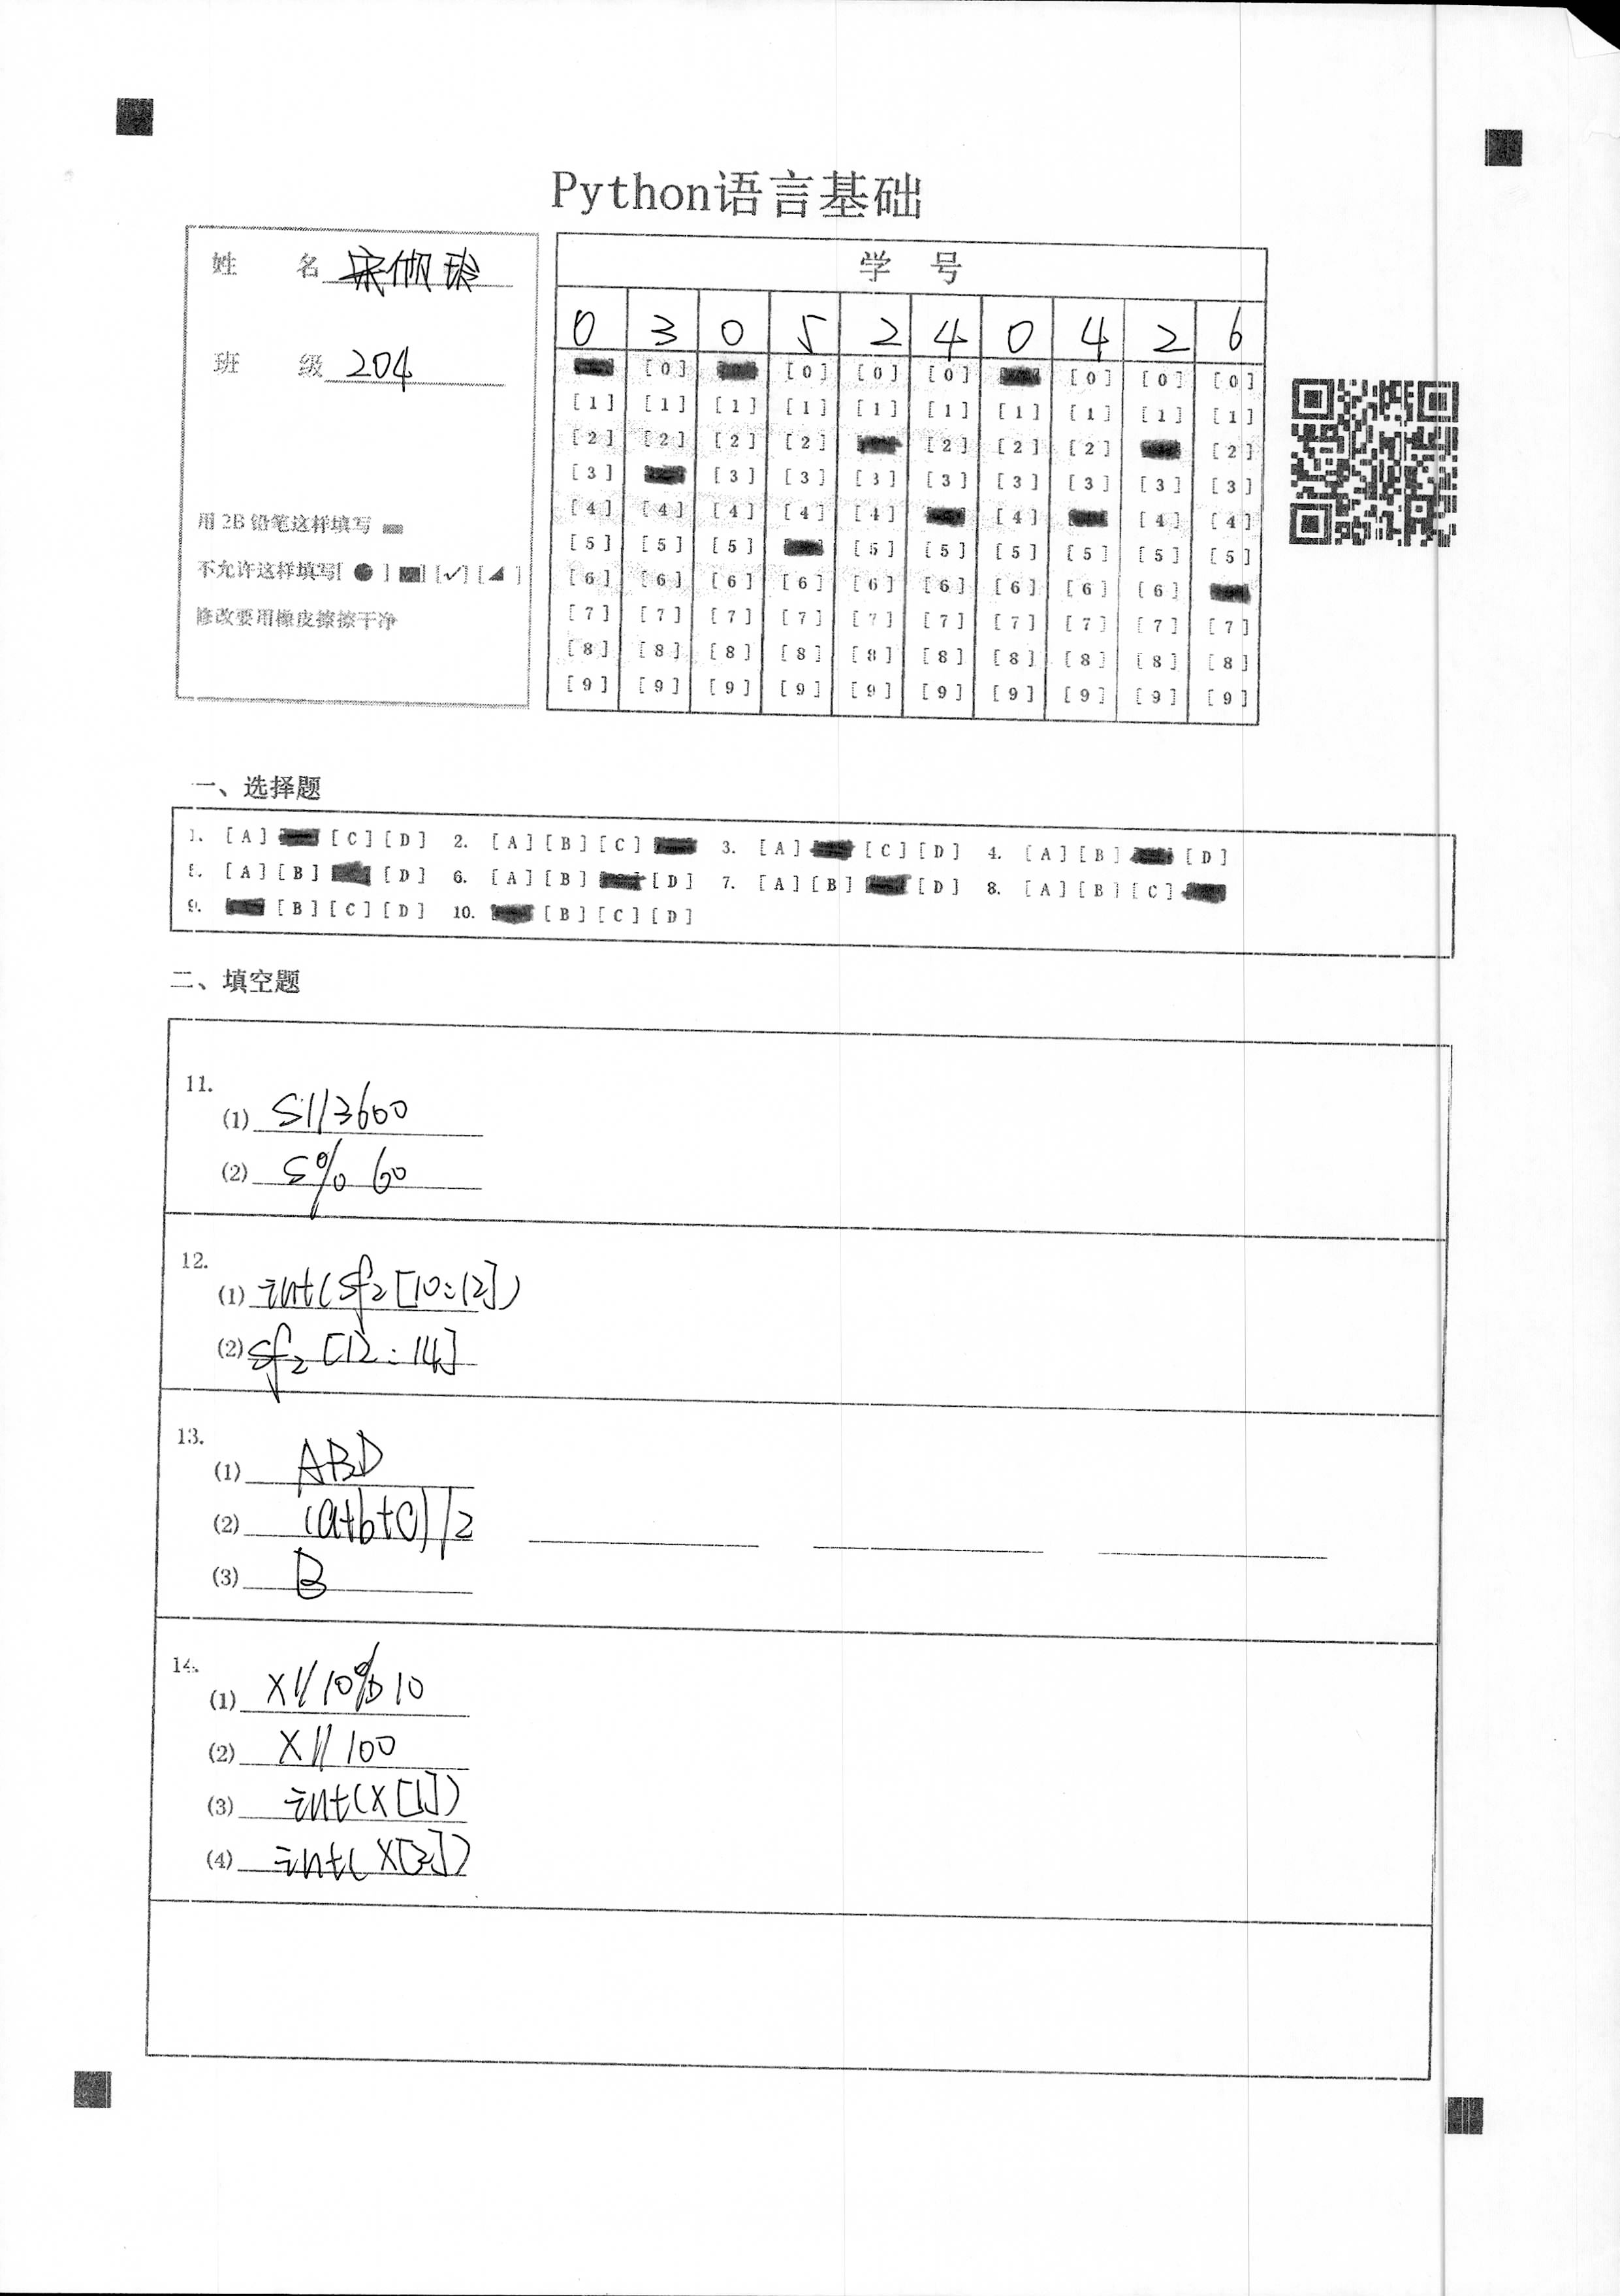 Python语言基础
姓 名 宋佩玲
班 级 204
用 2B 铅笔这样填写
不允许这样填写[ ● ] [■] [✓] [◢ ]
修改要用橡皮擦擦干净
学 号
0 3 0 5 2 4 0 4 2 6
[0] [0] [0] [0] [0] [0] [0]
[1] [1] [1] [1] [1] [1] [1] [1] [1] [1]
[2] [2] [2] [2] [2] [2] [2] [2]
[3] [3] [3] [3] [3] [3] [3] [3] [3]
[4] [4] [4] [4] [4] [4] [4] [4]
[5] [5] [5] [5] [5] [5] [5] [5] [5]
[6] [6] [6] [6] [6] [6] [6] [6] [6]
[7] [7] [7] [7] [7] [7] [7] [7] [7] [7]
[8] [8] [8] [8] [8] [8] [8] [8] [8] [8]
[9] [9] [9] [9] [9] [9] [9] [9] [9] [9]
一、选择题
1. [A] [C] [D] 2. [A] [B] [C] 3. [A] [C] [D] 4. [A] [B] [D]
5. [A] [B] [D] 6. [A] [B] [D] 7. [A] [B] [D] 8. [A] [B] [C]
9. [B] [C] [D] 10. [B] [C] [D]
二、填空题
11.
(1) S//3600
(2) S% 60
12.
(1) int(sf2[10:12])
(2) sf2[12:14]
13.
(1) ABD
(2) (a+b+c)/2
(3) B
14.
(1) X//10%10
(2) X//100
(3) int(X[1])
(4) int(X[2])